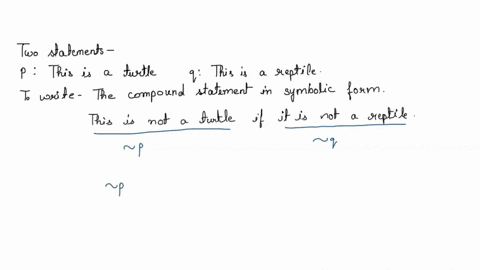 Two statements-
p: This is a turtle q: This is a reptile.
To write- The compound statement in symbolic form.
This is not a turtle if it is not a reptile.
~p ~q
~p